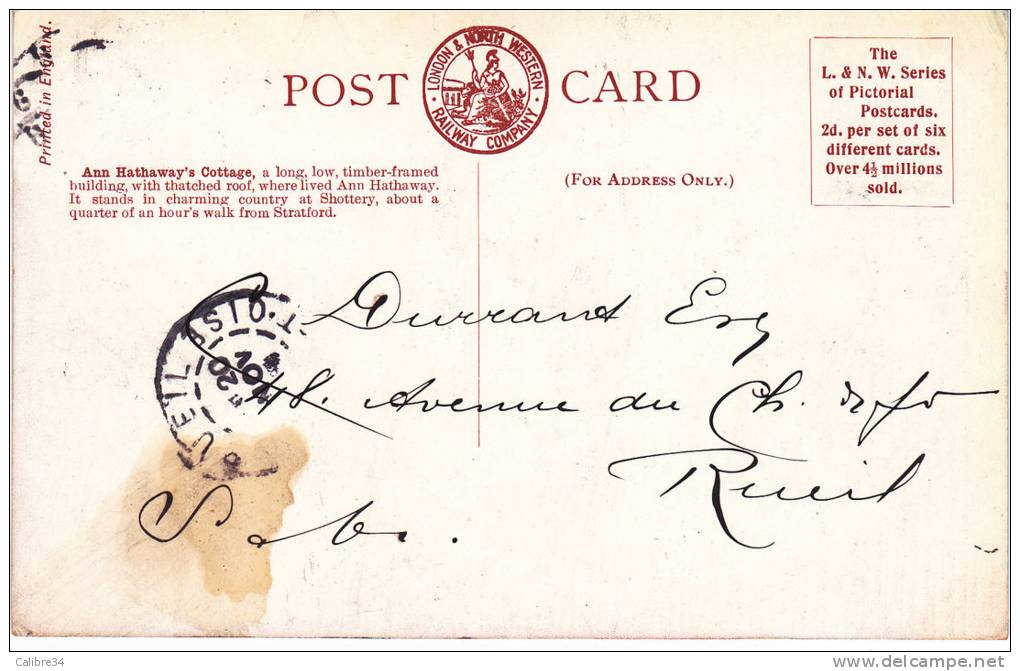 Printed in England.
POST CARD
LONDON & NORTH WESTERN · RAILWAY COMPANY ·
The
L. & N. W. Series
of Pictorial
Postcards.
2d. per set of six
different cards.
Over 4½ millions
sold.
Ann Hathaway's Cottage, a long, low, timber-framed
building, with thatched roof, where lived Ann Hathaway.
It stands in charming country at Shottery, about a
quarter of an hour's walk from Stratford.
(FOR ADDRESS ONLY.)
Durrant Esq
48. Avenue du Ch. de fer
Rueil
S
UEIL
T-OISE
20
Calibre34
www.delcampe.net